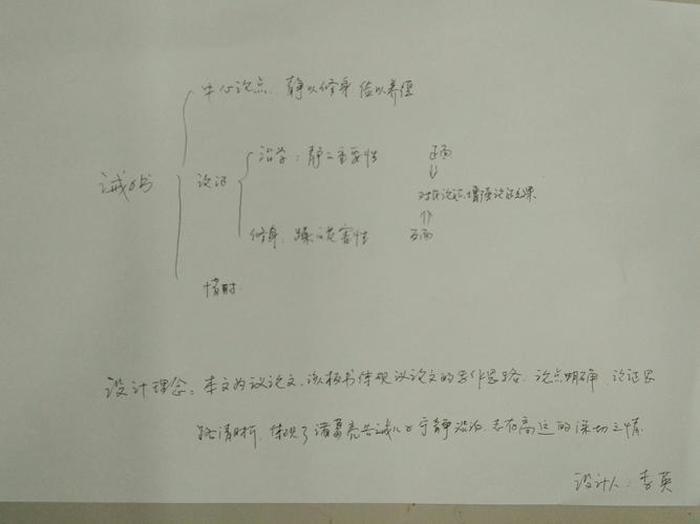 中心论点：静以修身 俭以养德
治学：静的重要性 正面
诫子书 论证
对比论证，增强论证效果
修身：躁的危害性 反面
惜时
设计理念：本文为议论文，该板书体现议论文的写作思路，论点明确，论证思
路清晰，体现了诸葛亮告诫儿子宁静淡泊，志存高远的深切之情
设计人：李英